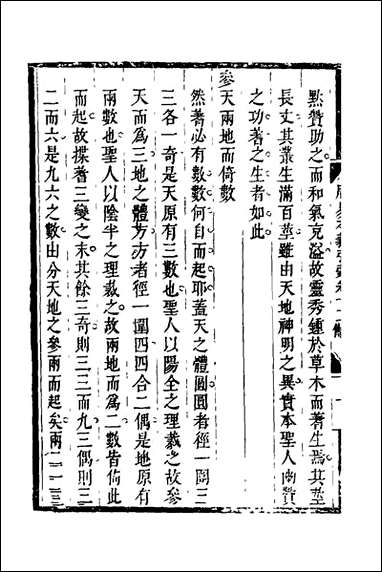 默贊助之而和氣充溢故靈秀鍾於草木而蓍生焉其莖
長丈其叢生滿百莖雖由天地神明之異實本聖人幽贊
之功蓍之生者如此
參天兩地而倚數
然蓍必有數數何自而起耶蓋天之體圓圓者徑一圍三
三各一奇是天原有三數也聖人以陽全之理裁之故參
天而為三地之體方方者徑一圍四四合二偶是地原有
兩數也聖人以陰半之理裁之故兩地而為二數皆倚此
而起故揲蓍三變之末其餘三奇則三三而九三偶則三
二而六是九六之數由分天地之參兩而起矣兩二一三